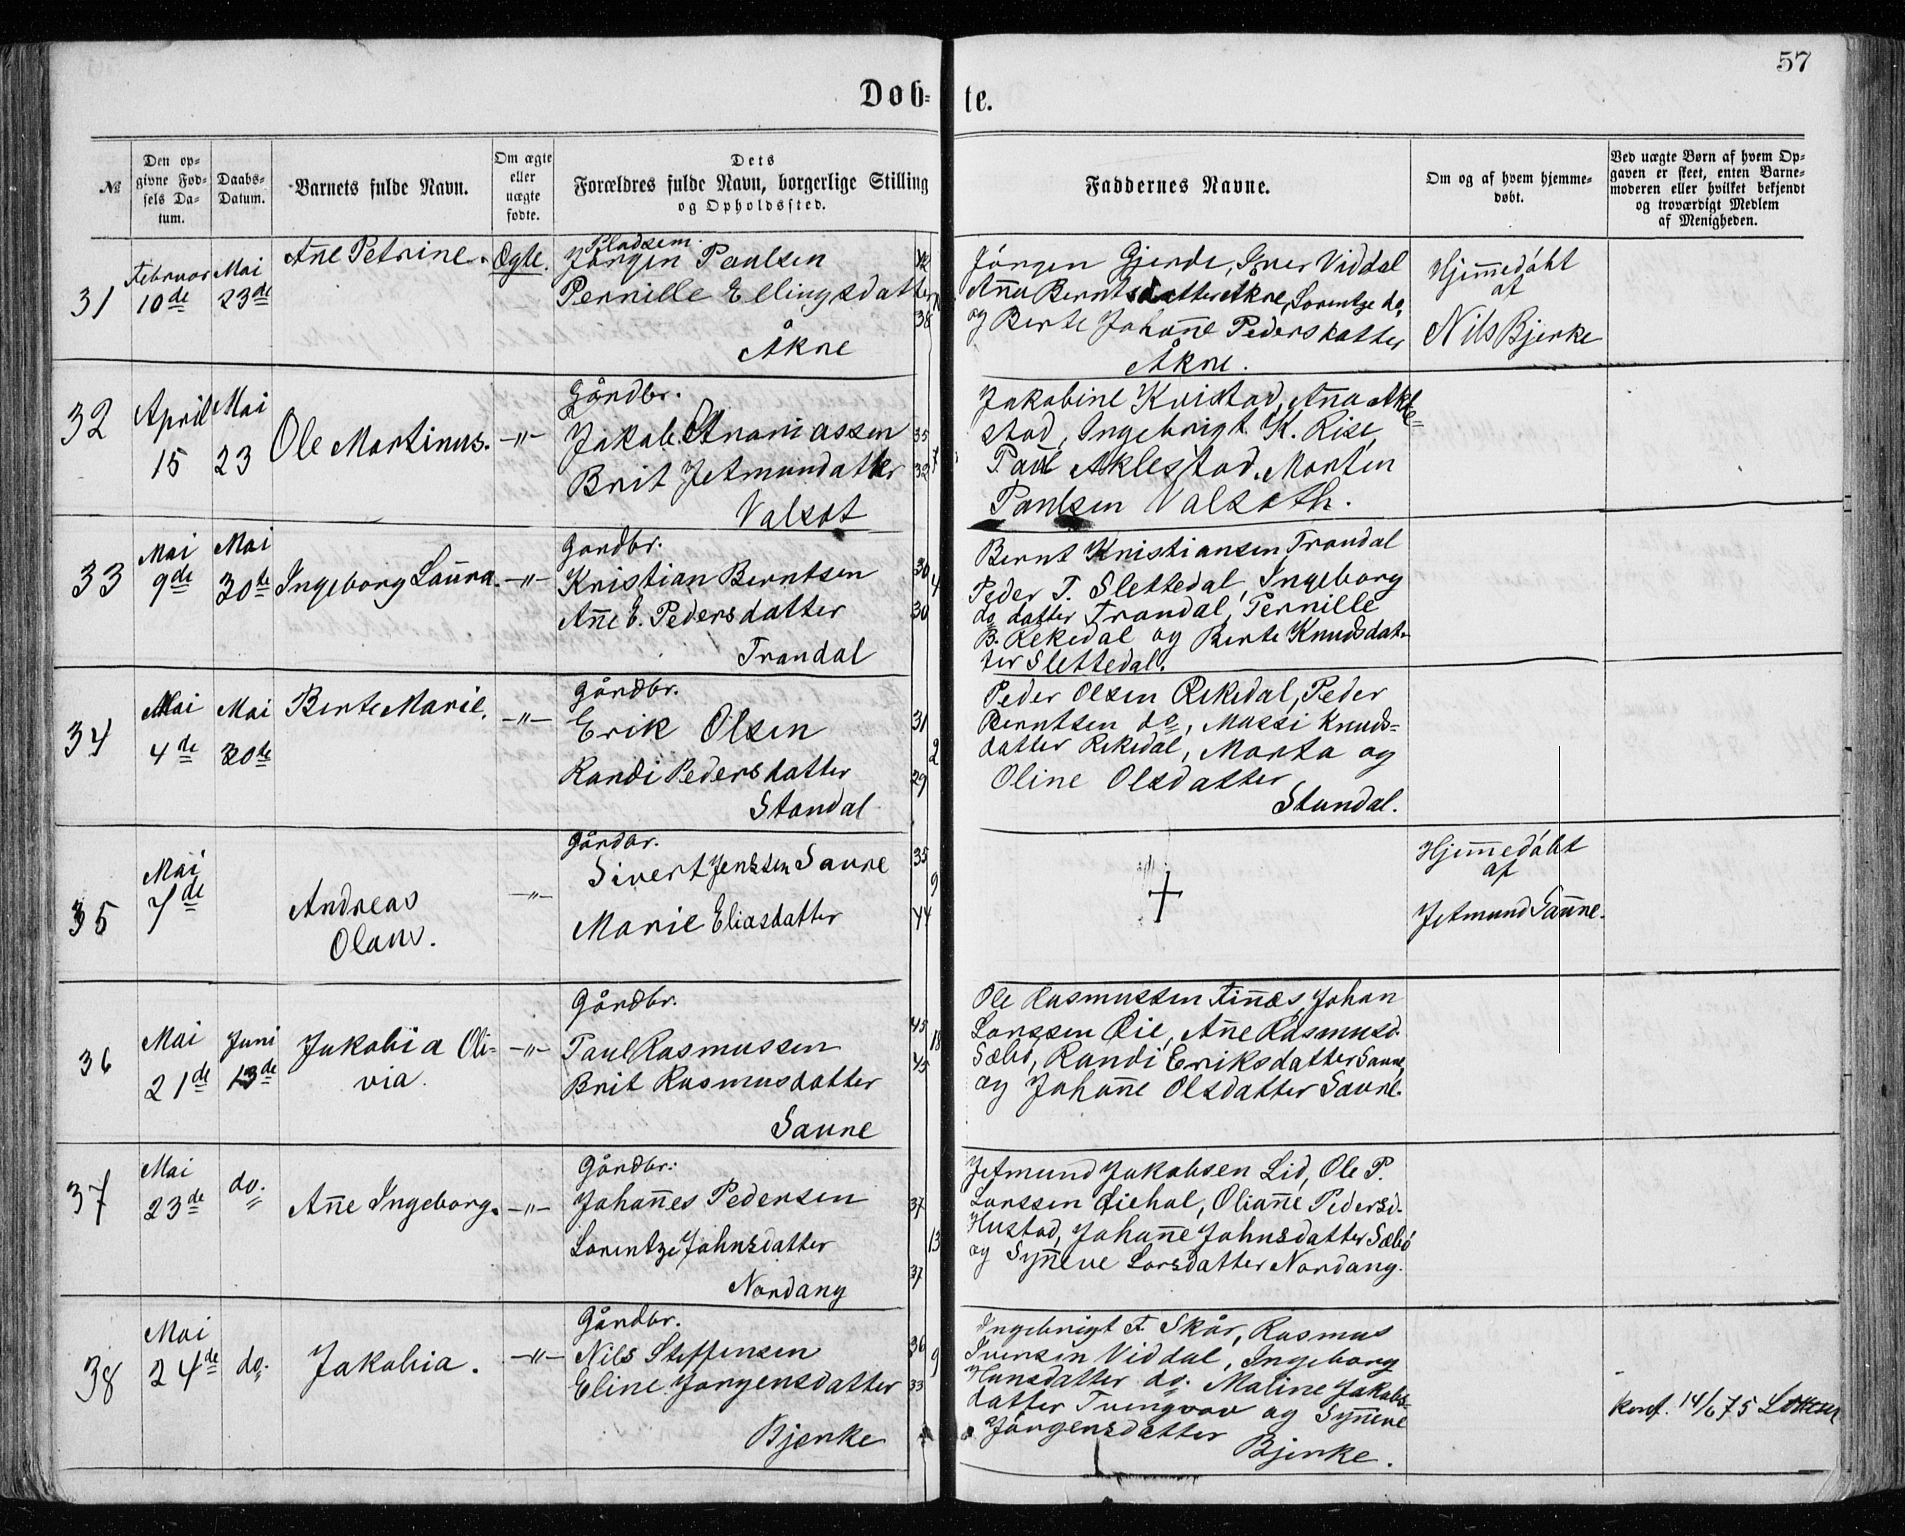 57
Døb- te.
№
Den op-
givne Fød-
sels Da-
tum.
Daabs-
Datum.
Barnets fulde Navn.
Om ægte
eller
uægte
fødte.
Dets
Forældres fulde Navn, borgerlige Stilling
og Opholdssted.
Faddernes Navne.
Om og af hvem hjemme-
døbt.
Ved uægte Børn af hvem Op-
gaven er skeet, enten Barne-
moderen eller hvilket bekjendt
og troværdigt Medlem
af Menigheden.
31
Februar
10de
Mai
23de
Ane Petrine.
Ægte.
Pladsem.
Jørgen Paulsen
Pernille Ellingsdatter
Åkne
42
38
Jørgen Gjerde, Iver Viddal
Anna Berntsdatter Akne, Lorentze do,
og Berte Johane Pedersdatter
Åkne.
Hjemedøbt
af
Nils Bjerke
32
April
15
Mai
23
Ole Martinus.
-"-
Gårdbr.
Jakob
Brit Jetmundatter
Valset
35
32
7
Jakobine Kvistad, Anna Akle-
stad, Ingebrigt K. Rise,
Paul Aklestad, Morten
Paulsen Valseth.
33
Mai
9de
Mai
30te
Ingeborg Laura.
-"-
Gardbr.
Kristian Berntsen
Ane E. Pedersdatter
Trandal
30
30
4
Bernt Kristiansen Trandal
Peder T. Slettedal, Ingeborg
do datter Trandal, Pernille
B. Rekedal og Berte Knudsdat-
ter Slettedal.
34
Mai
4de
Mai
30te
Berte Marie.
-"-
Gårdbr.
Erik Olsen
Randi Pedersdatter
Standal
31
29
2
Peder Olsen Rekedal, Peder
Berntsen do, Massi Knuds-
datter Rekedal, Marta og
Oline Olsdatter
Standal.
35
Mai
7de
Andreas
Olaus.
-"-
Gårdbr.
Sivert Jenssen Saure
Marie Eliasdatter
35
44
9
Hjemedøbt
af
Jetmund Saure.
36
Mai
21de
Juni
13de
Jakobia Oli-
via.
-"-
Gårdbr.
Paul Rasmussen
Brit Rasmusdatter
Saure
45
45
18
Ole Rasmussen Finæs, Johan
Larssen Øie, Ane Rasmusd.
Sæbø, Randi Eriksdatter Saure,
og Johane Olsdatter Saure.
37
Mai
23de
do.
Ane Ingeborg.
-"-
Gårdbr.
Johanes Pedersen
Lorentze Johnsdatter
Nordang
37
37
13
Jetmund Jakobsen Lid, Ole P.
Larssen Øiehal, Oliane Pedersd.
Hustad, Johane Johnsdatter Sæbø
og Syneve Larsdatter Nordang.
38
Mai
24de
do.
Jakobia.
-"-
Gårdbr.
Nils Steffensen
Eline Jørgensdatter
Bjerke
36
33
9
Ingebrigt T. Skår, Rasmus
Iversen Viddal, Ingeborg
Hansdatter do. Maline Jakobs-
datter og Syneve
Jørgensdatter
Bjerke.
Konf. 14/6 75